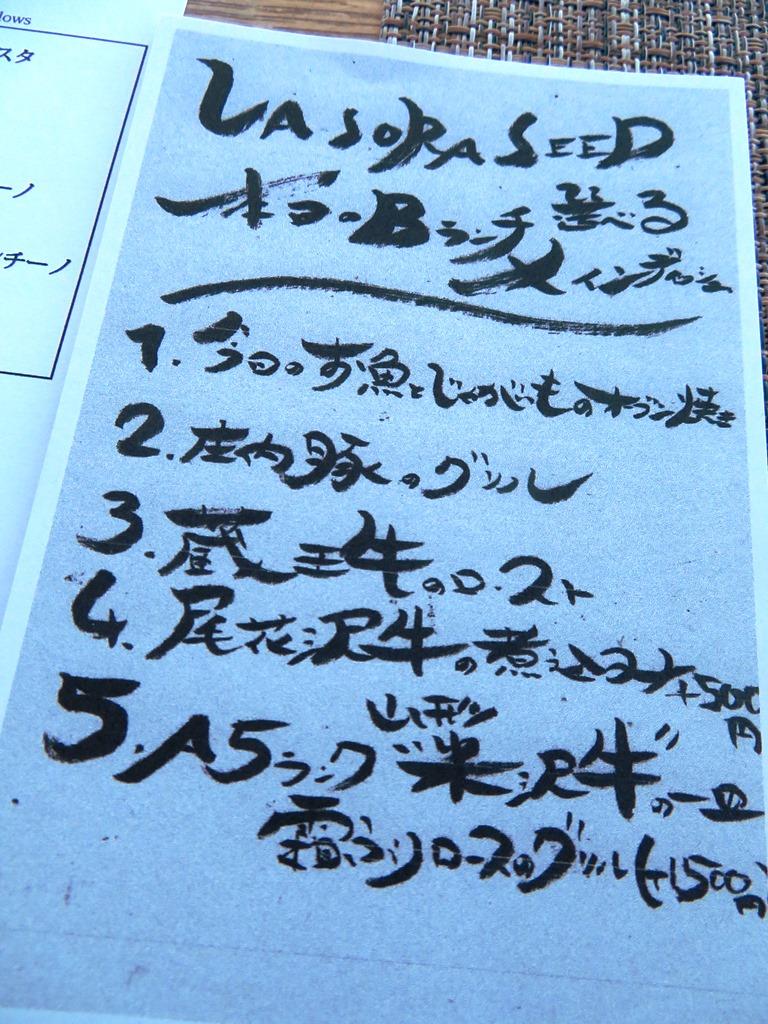 lows
スタ
ーノ
チーノ
LA SORA SEED
本日のBランチ 選べる
メインディッシュ
1. 今日のお魚とじゃがいものオーブン焼き
2. 庄内豚のグリル
3. 蔵王牛のロースト
4. 尾花沢牛の煮込み +500円
5. A5ランク 山形"米沢牛"の一皿
霜ふりロースのグリル(+1500円